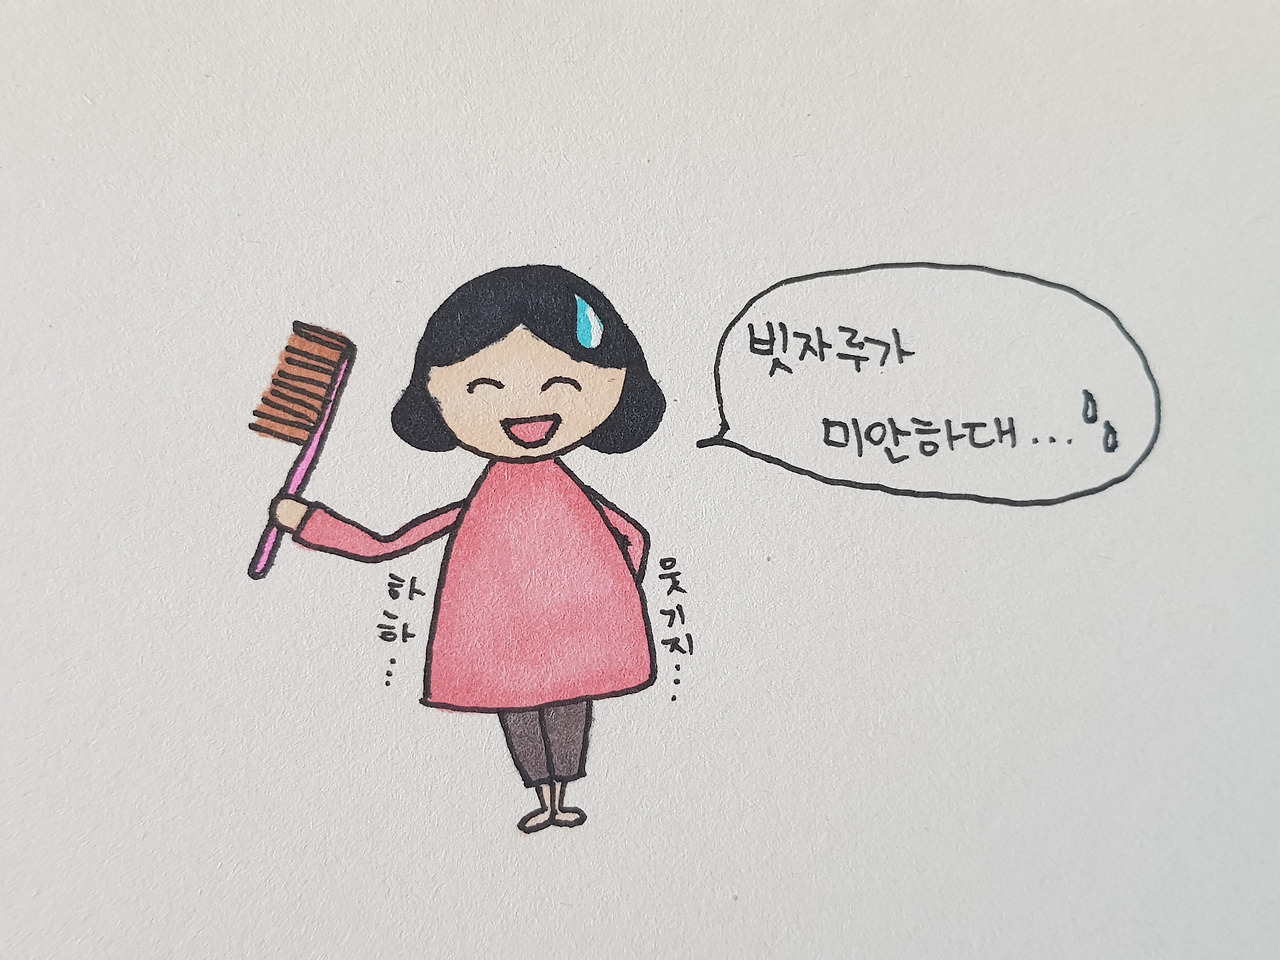 빗자루가
미안하대...
하하...
웃기지...